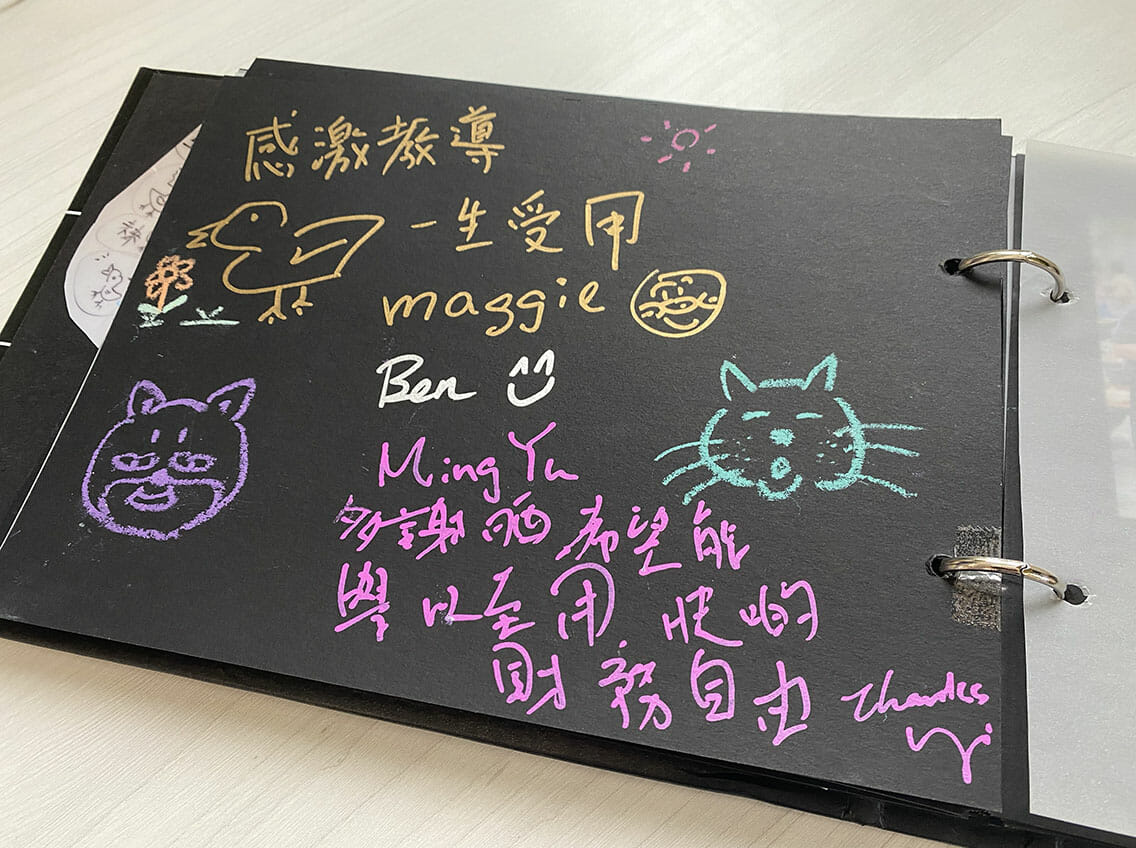 感激教導
一生受用
maggie
Ben
Ming Yu
多謝晒 希望能
學以至用 快啲
財務自由 Thanks